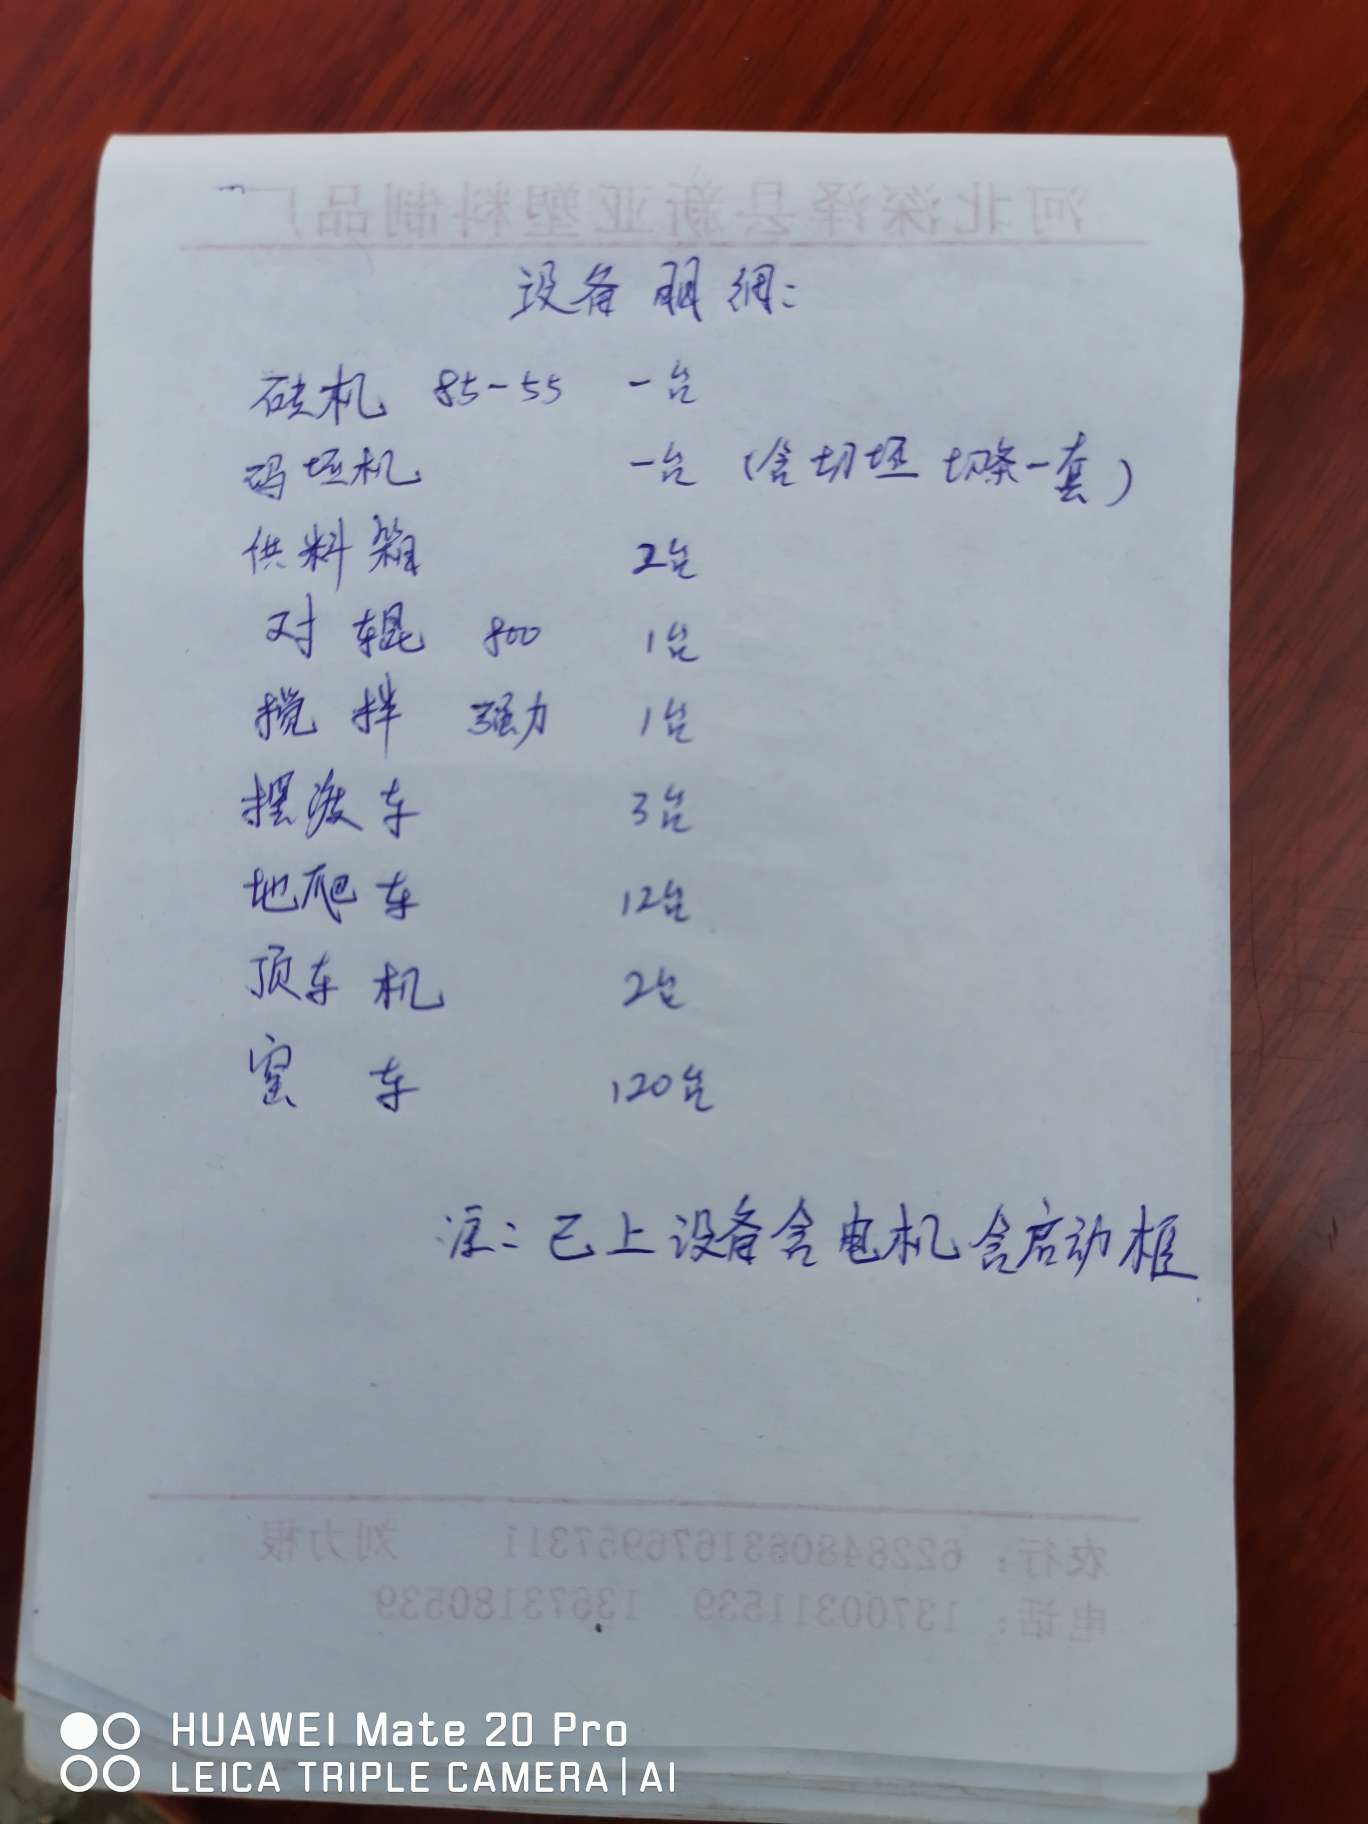 河北深泽县新亚塑料制品厂
设备明细：
砖机 85-55 一台
码坯机 一台（含切坯 切条一套）
供料箱 2台
对辊 800 1台
搅拌 强力 1台
摆渡车 3台
地爬车 12台
顶车机 2台
窑车 120台
注：已上设备含电机含启动柜
农行：6228480631676957311 刘力根
电话：13700311539 13673180539
HUAWEI Mate 20 Pro
LEICA TRIPLE CAMERA | AI